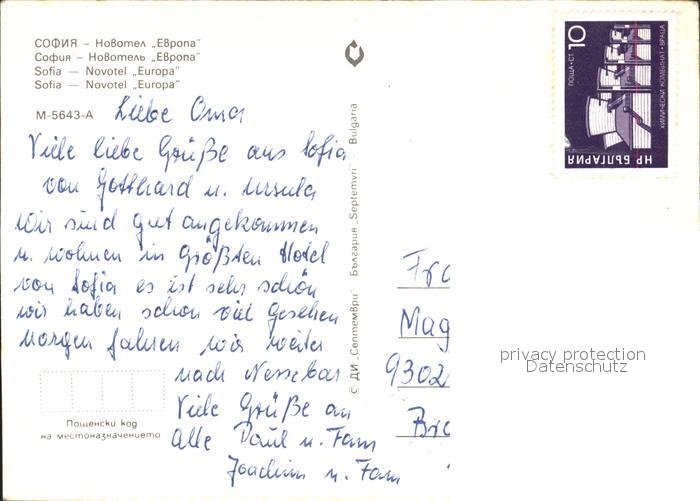 СОФИЯ – Новотел „Европа“
София – Новотель „Европа“
Sofia — Novotel „Europa“
Sofia — Novotel „Europa“
М-5643-А
Liebe Oma
Viele liebe Grüße aus Sofia
von Gotthard u. Ursula
wir sind gut angekommen
u. wohnen in Größten Hotel
von Sofia es ist sehr schön
wir haben schon viel gesehen
Morgen fahren wir weiter
nach Nessebar
Viele Grüße an
Alle Paul u. Fam
Joachim u. Fam
Пощенски код
на местоназначението
© ДИ „Септември“ България „Septemvri“ Bulgaria
ПОЩА • СТ. 10
ХИМИЧЕСКИ КОМБИНАТ • ВРАЦА
НР БЪЛГАРИЯ
Fra
Mag
9302
privacy protection
Datenschutz